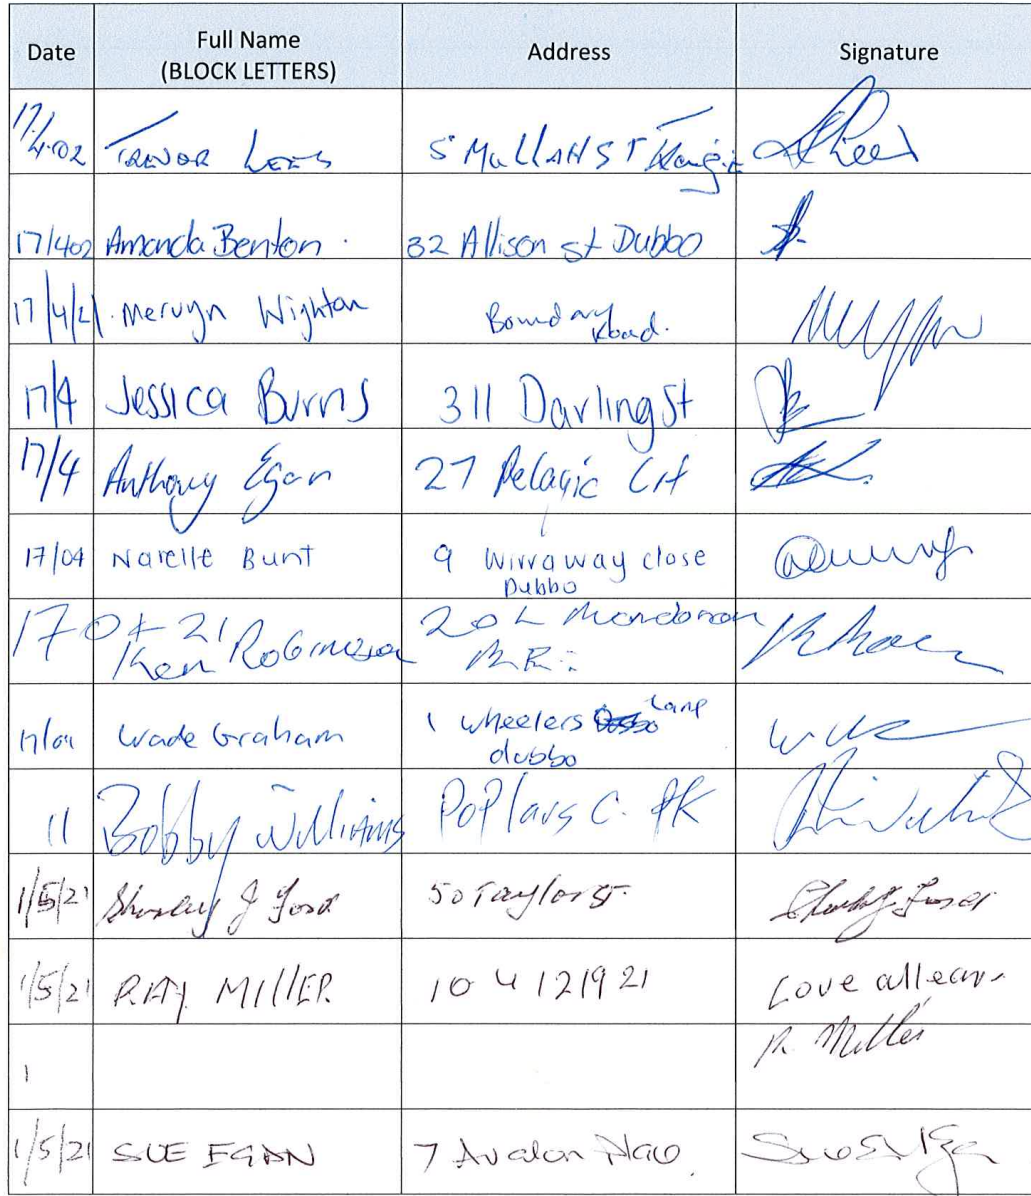 Date Full Name Address Signature
(BLOCK LETTERS)
17/4.02 TREVOR LEES 5 MULLAH ST
17/402 Amanda Benton. 32 Allison st Dubbo
17/4/21. Mervyn Wighton Boundary
Road.
17/4 Jessica Burns 311 Darling St
17/4 Anthony Egan 27 Pelagic Crt
17/04 Narelle Bunt 9 Wirraway close
Dubbo
17 04 21 20 L Mendooran
Ken Robinson
17/04 Wade Graham 1 wheelers lane
dubbo
11 Bobby Williams Poplars C. PK
1/5/21 50 Taylor St.
1/5/21 RAY MILLER. 10 4 121921 Love all ears
R. Miller
1
1/5/21 SUE EGAN 7 Avalon Place